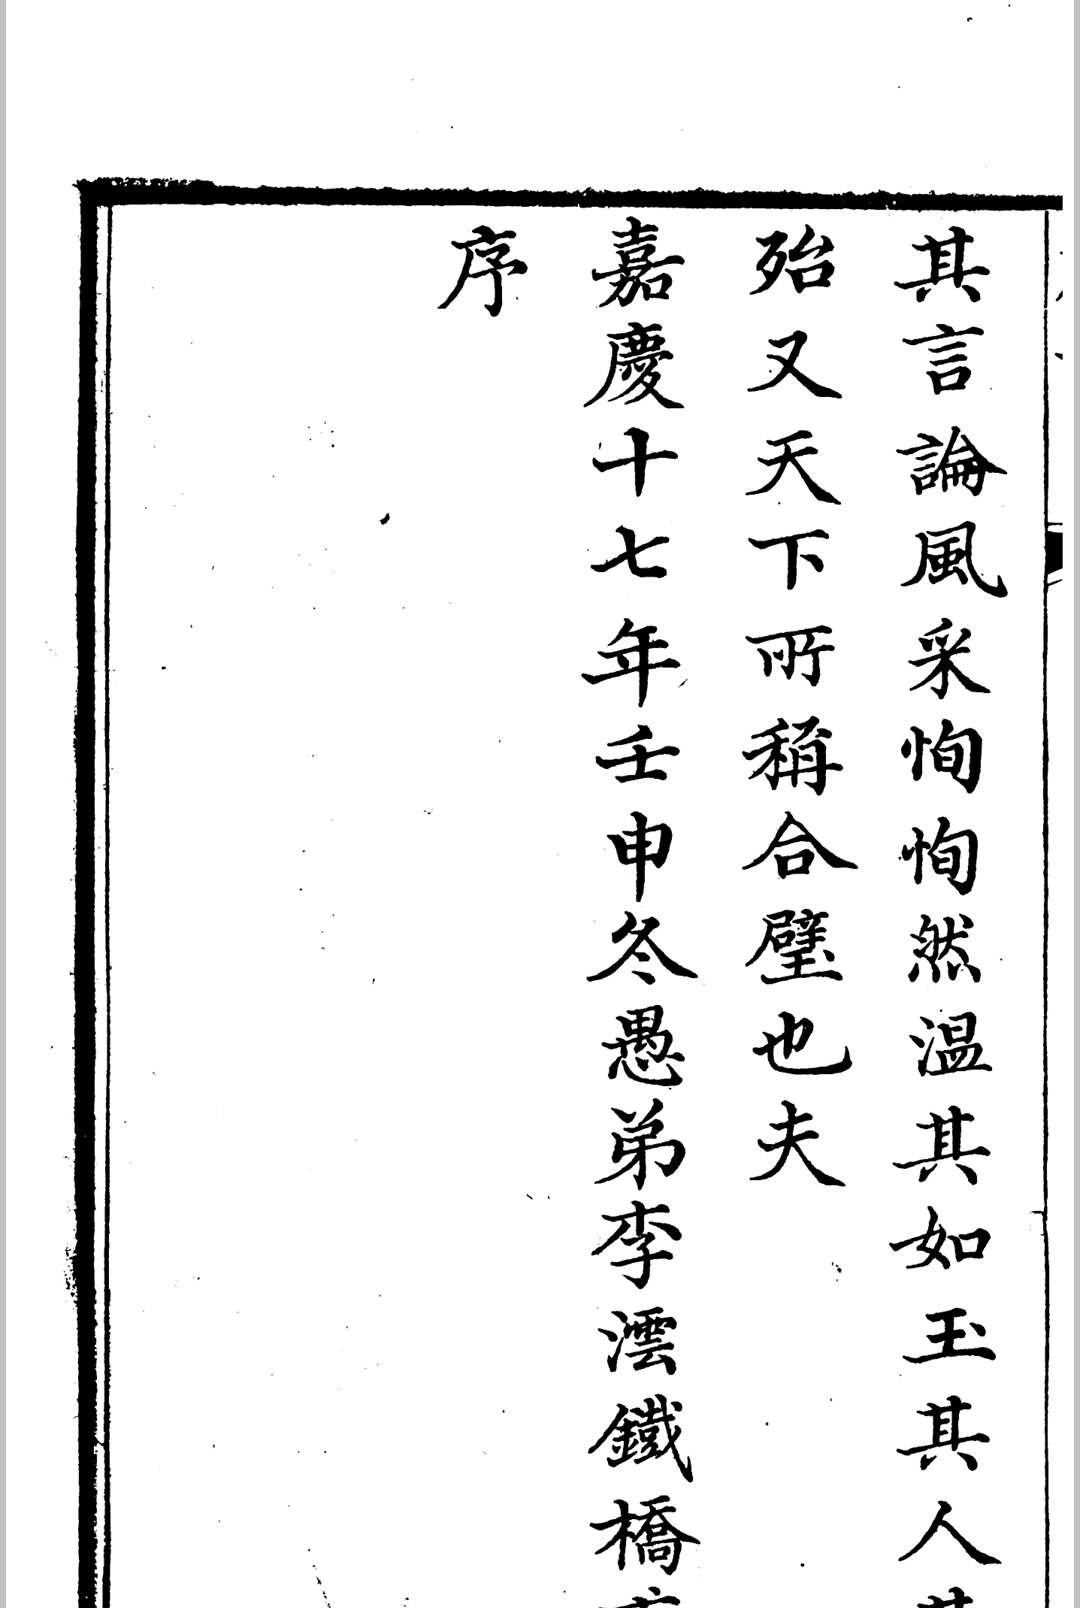 其言論風采恂恂然溫其如玉其人
殆又天下所稱合璧也夫
嘉慶十七年壬申冬愚弟李澐鐵橋
序